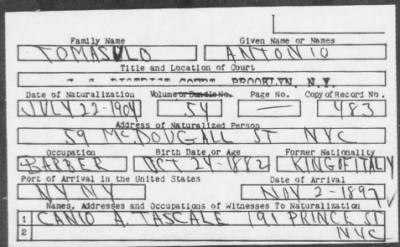 Family Name Given Name or Names
TOMASULO ANTONIO
Title and Location of Court
U. S. DISTRICT COURT, BROOKLYN, N.Y.
Date of Naturalization Volume or Bundle No. Page No. Copy of Record No.
JULY 22-1904 54 — 483
Address of Naturalized Person
59 MCDOUGALL ST NYC
Occupation Birth Date or Age Former Nationality
BARBER OCT 24-1882 KING OF ITALY
Port of Arrival in the United States Date of Arrival
NY NY NOV 2-1897
Names, Addresses and Occupations of Witnesses To Naturalization
1 CANIO A. TASCALE 191 PRINCE ST
2 NYC